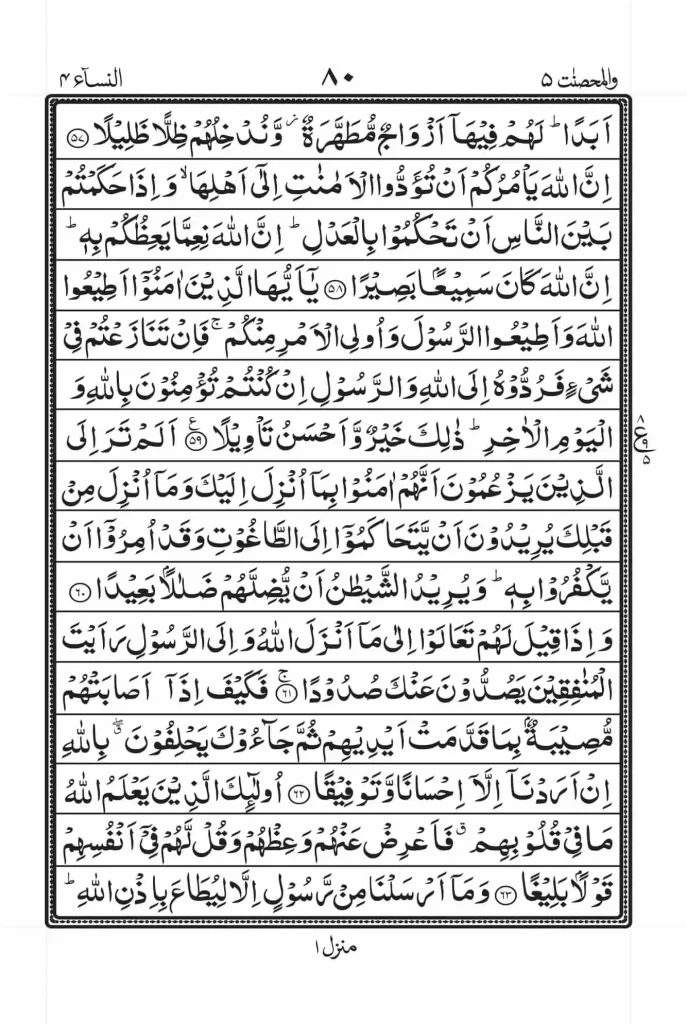 والمحصنٰت ۵ ۸۰ النسآء ۴
اَبَدًا ؕ لَهُمْ فِيْهَاۤ اَزْوَاجٌ مُّطَهَّرَةٌ ؗ وَّنُدْخِلُهُمْ ظِلًّا ظَلِيْلًا ﴿۵۷﴾
اِنَّ اللّٰهَ يَاْمُرُكُمْ اَنْ تُؤَدُّوا الْاَمٰنٰتِ اِلٰۤى اَهْلِهَا ۙ وَاِذَا حَكَمْتُمْ
بَيْنَ النَّاسِ اَنْ تَحْكُمُوْا بِالْعَدْلِ ؕ اِنَّ اللّٰهَ نِعِمَّا يَعِظُكُمْ بِهٖ ؕ
اِنَّ اللّٰهَ كَانَ سَمِيْعًۢا بَصِيْرًا ﴿۵۸﴾ يٰۤاَيُّهَا الَّذِيْنَ اٰمَنُوْۤا اَطِيْعُوا
اللّٰهَ وَاَطِيْعُوا الرَّسُوْلَ وَاُولِى الْاَمْرِ مِنْكُمْ ۚ فَاِنْ تَنَازَعْتُمْ فِيْ
شَيْءٍ فَرُدُّوْهُ اِلَى اللّٰهِ وَالرَّسُوْلِ اِنْ كُنْتُمْ تُؤْمِنُوْنَ بِاللّٰهِ وَ
الْيَوْمِ الْاٰخِرِ ؕ ذٰلِكَ خَيْرٌ وَّاَحْسَنُ تَاْوِيْلًا ﴿۵۹﴾ اَلَمْ تَرَ اِلَى
۸ ع ۹ ۵
الَّذِيْنَ يَزْعُمُوْنَ اَنَّهُمْ اٰمَنُوْا بِمَاۤ اُنْزِلَ اِلَيْكَ وَمَاۤ اُنْزِلَ مِنْ
قَبْلِكَ يُرِيْدُوْنَ اَنْ يَّتَحَاكَمُوْۤا اِلَى الطَّاغُوْتِ وَقَدْ اُمِرُوْۤا اَنْ
يَّكْفُرُوْا بِهٖ ؕ وَيُرِيْدُ الشَّيْطٰنُ اَنْ يُّضِلَّهُمْ ضَلٰلًۢا بَعِيْدًا ﴿۶۰﴾
وَاِذَا قِيْلَ لَهُمْ تَعَالَوْا اِلٰى مَاۤ اَنْزَلَ اللّٰهُ وَاِلَى الرَّسُوْلِ رَاَيْتَ
الْمُنٰفِقِيْنَ يَصُدُّوْنَ عَنْكَ صُدُوْدًا ﴿۶۱﴾ ۚ فَكَيْفَ اِذَاۤ اَصَابَتْهُمْ
مُّصِيْبَةٌۢ بِمَا قَدَّمَتْ اَيْدِيْهِمْ ثُمَّ جَآءُوْكَ يَحْلِفُوْنَ ۖۗ بِاللّٰهِ
اِنْ اَرَدْنَاۤ اِلَّاۤ اِحْسَانًا وَّتَوْفِيْقًا ﴿۶۲﴾ اُولٰٓئِكَ الَّذِيْنَ يَعْلَمُ اللّٰهُ
مَا فِيْ قُلُوْبِهِمْ ۗ فَاَعْرِضْ عَنْهُمْ وَعِظْهُمْ وَقُلْ لَّهُمْ فِيْۤ اَنْفُسِهِمْ
قَوْلًۢا بَلِيْغًا ﴿۶۳﴾ وَمَاۤ اَرْسَلْنَا مِنْ رَّسُوْلٍ اِلَّا لِيُطَاعَ بِاِذْنِ اللّٰهِ ؕ
منزل ۱